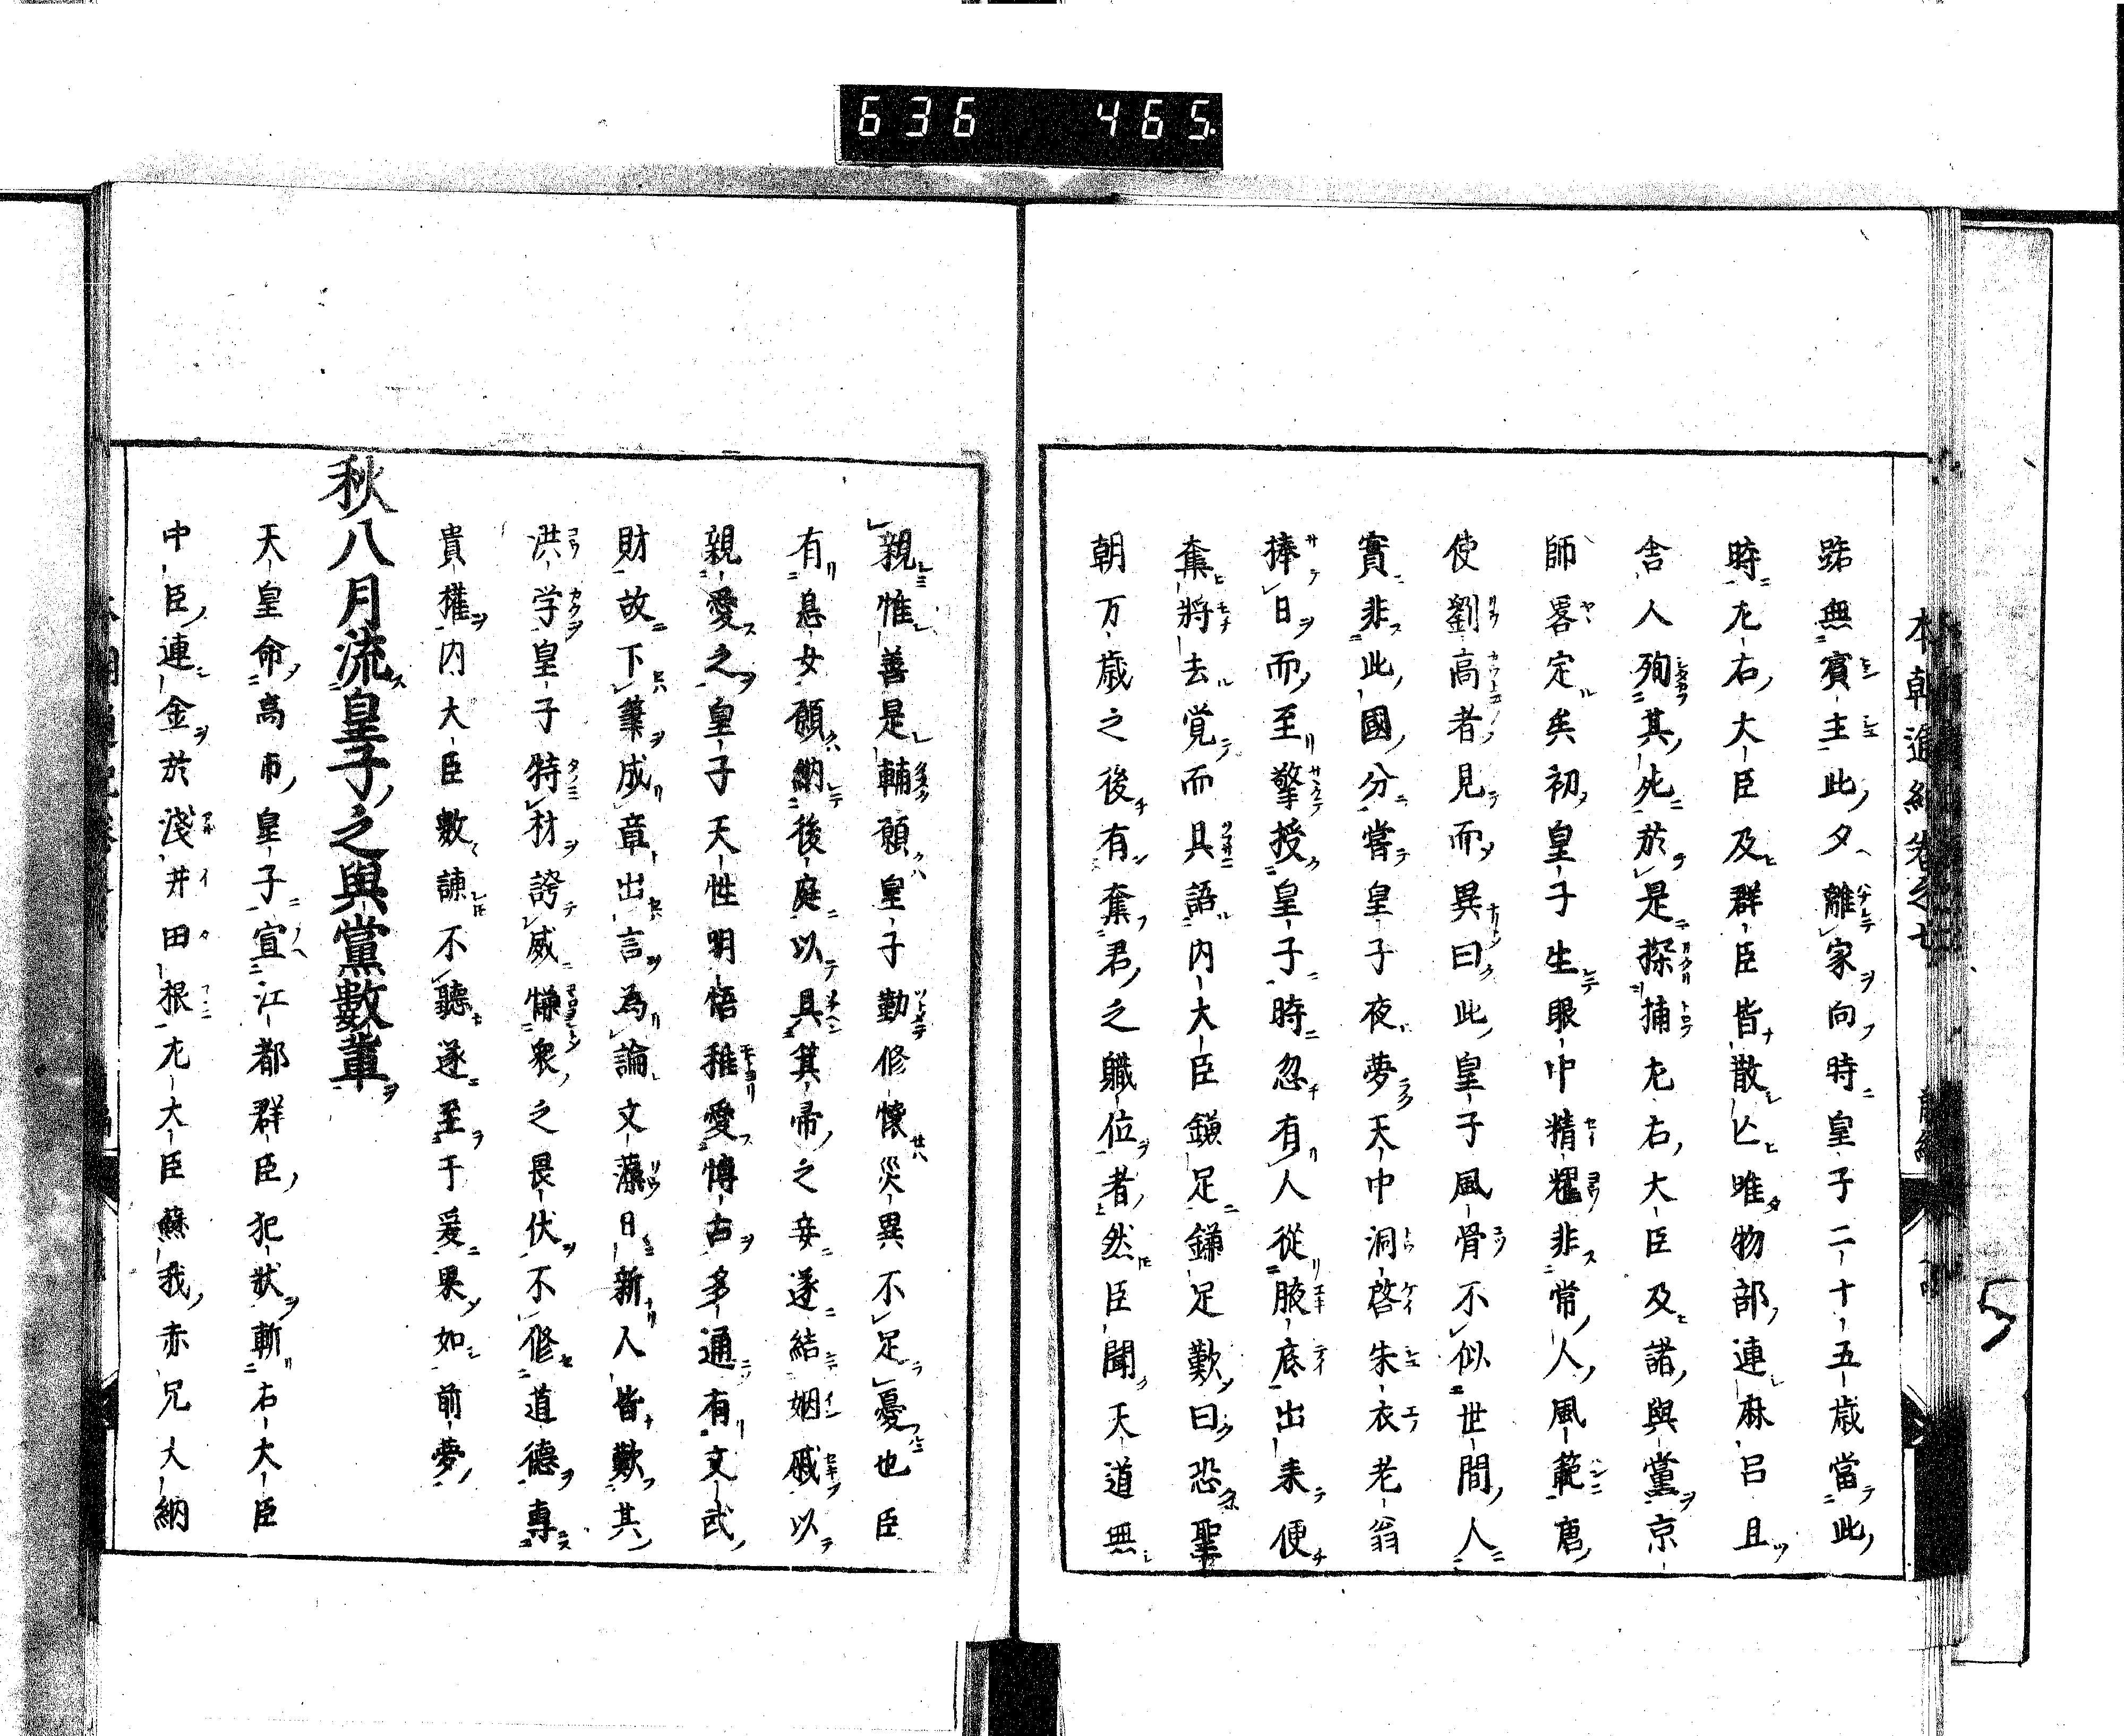 636 465
本朝通紀卷之七
5
踪無賓主此夕離家向時皇子二十五歳當此
時尢右大臣及群臣皆散亡唯物部連麻呂且
舎人殉其死於是探捕尢右大臣及諸與黨京
師畧定矣初皇子生眼中精耀非常人風範唐
使劉高者見而異曰此皇子風骨不似世間人
實非此國分嘗皇子夜夢天中洞啓朱衣老翁
捧日而至擎授皇子時忽有人從腋底出来便
奪將去覚而具語内大臣鎌足鎌足歎曰恐聖
朝万歳之後有奪君之職位者然臣聞天道無
親惟善是輔願皇子勤修懐災異不足憂也臣
有息女願納後庭以具箕帚之妾遂結姻戚以
親愛之皇子天性明悟稚愛博古多通有文武
財故下筆成章出言為論文藻日新人皆歎其
洪学皇子特材誇威慊衆之畏伏不修道德專
貴權内大臣數諫不聽遂至于爰果如前夢
秋八月流皇子之與黨數輩
天皇命高市皇子宣江都群臣犯状斬右大臣
中臣連金於淺井田根尢大臣蘇我赤兄大納